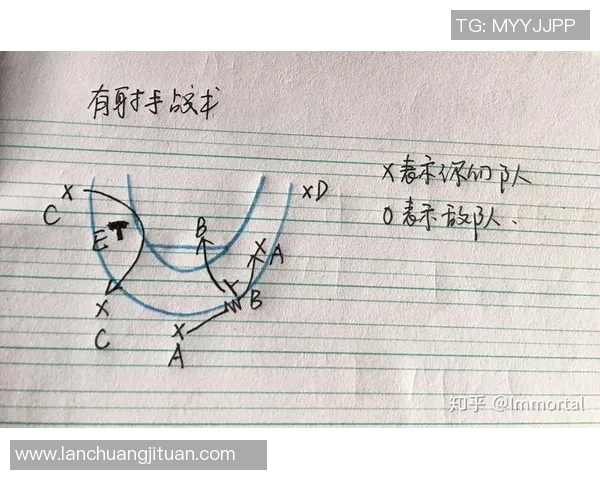 TG: MYYJJPP
有射手战术
X表示你们队
O表示敌队.
X
C
E
B
X A
X D
X
C
B
X
A
知乎 @Immortal
www.lanchuangjituan.com